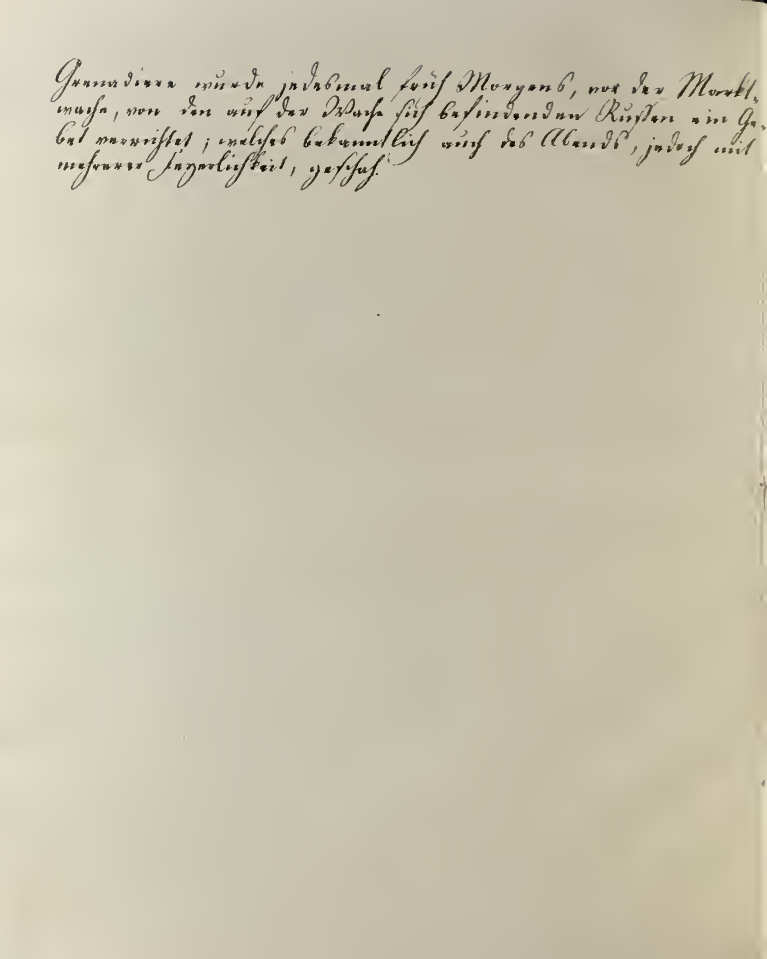 Grenadiere wurde jedesmal früh Morgens, vor der Markt-
wache, von den auf der Wache sich befindenden Rußen ein Ge-
bet verrichtet; welches bekanntlich auch des Abends, jedoch mit
mehrerer Feyerlichkeit, geschah.